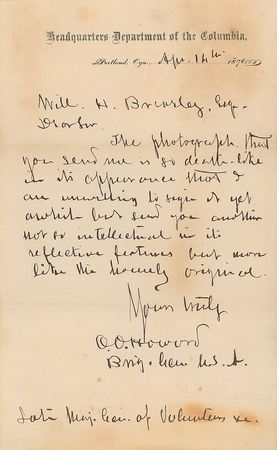 Headquarters Department of the Columbia,
Portland, Ogn., Apr. 14th 187
Will. H. Brearley, Esq.
Dear Sir,
The photograph that
you send me is so death-like
in its appearance that I
am unwilling to sign it yet
awhile but send you another
not so intellectual in its
reflective features but more
like the homely original.
Yours truly
O.O. Howard
Brig. Gen. U.S.A.
Late Maj. Gen. of Volunteers &c.